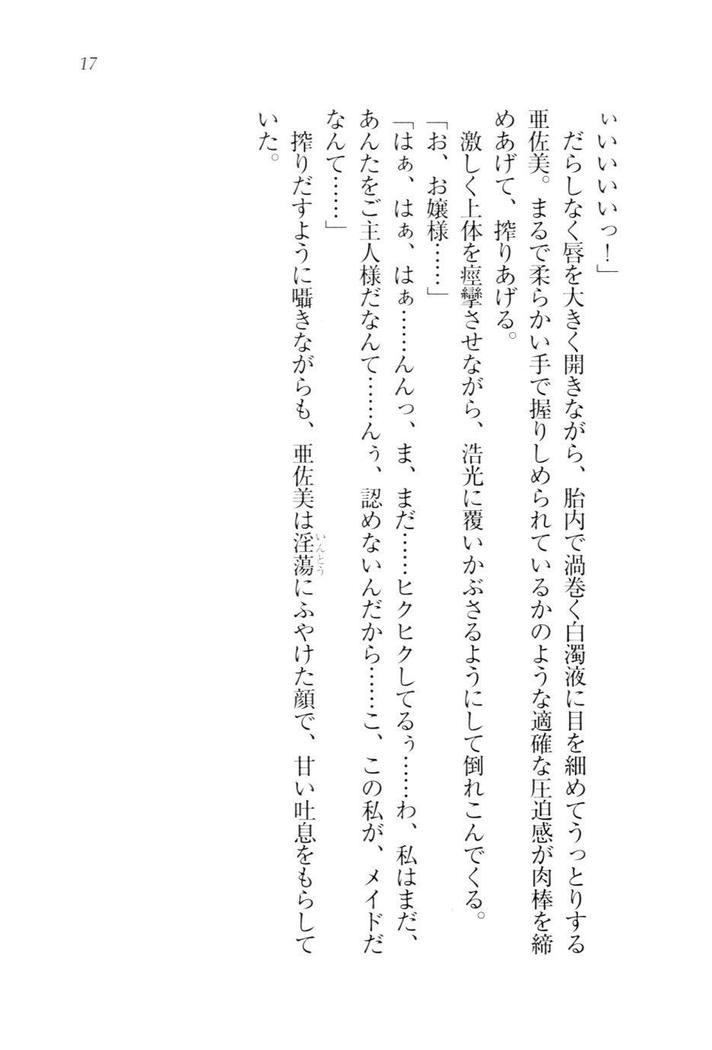 17
ぃいいいいっ！」
　だらしなく唇を大きく開きながら、胎内で渦巻く白濁液に目を細めてうっとりする
亜佐美。まるで柔らかい手で握りしめられているかのような適確な圧迫感が肉棒を締
めあげて、搾りあげる。
　激しく上体を痙攣させながら、浩光に覆いかぶさるようにして倒れこんでくる。
「お、お嬢様……」
「はぁ、はぁ、はぁ……んんっ、ま、まだ……ヒクヒクしてるぅ……わ、私はまだ、
あんたをご主人様だなんて……んぅ、認めないんだから……こ、この私が、メイドだ
なんて……」
　搾りだすように囁きながらも、亜佐美は淫蕩いんとうにふやけた顔で、甘い吐息をもらして
いた。